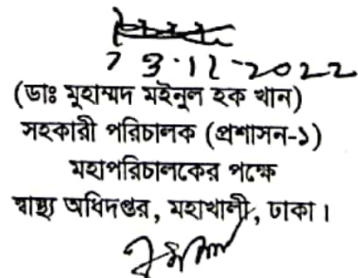 3.12-2022
(ডাঃ মুহাম্মদ মইনুল হক খান)
সহকারী পরিচালক (প্রশাসন-১)
মহাপরিচালকের পক্ষে
স্বাস্থ্য অধিদপ্তর, মহাখালী, ঢাকা।